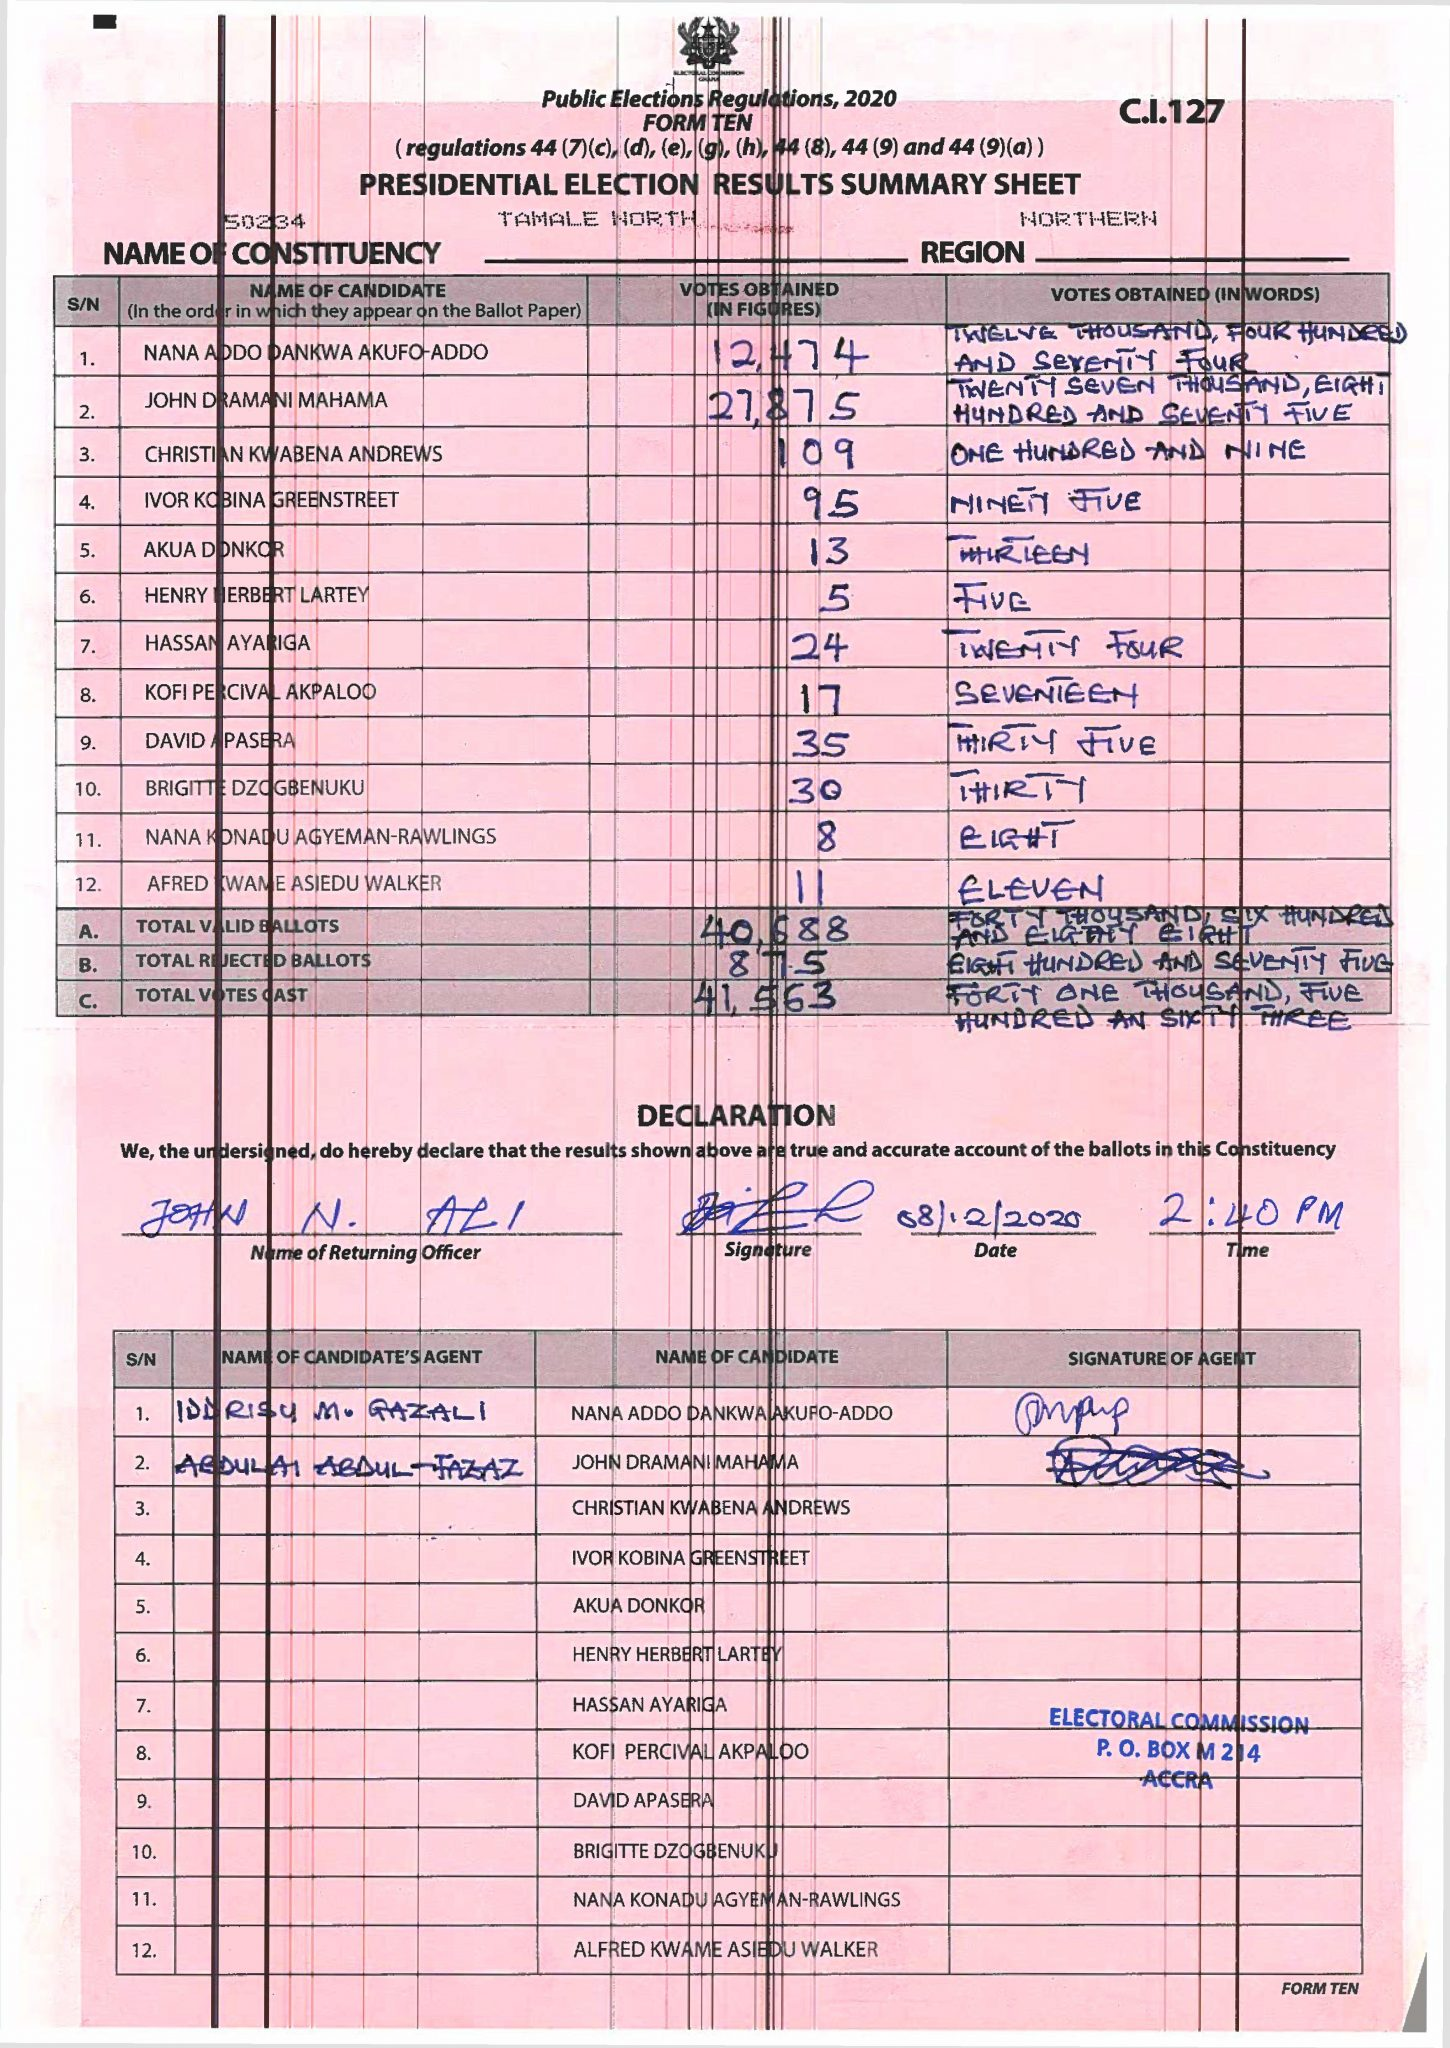 ELECTORAL COMMISSION
GHANA
Public Elections Regulations, 2020
C.I.127
FORM TEN
( regulations 44 (7)(c), (d), (e), (g), (h), 44 (8), 44 (9) and 44 (9)(a) )
PRESIDENTIAL ELECTION RESULTS SUMMARY SHEET
50234 TAMALE NORTH NORTHERN
NAME OF CONSTITUENCY REGION
S/N NAME OF CANDIDATE (In the order in which they appear on the Ballot Paper) VOTES OBTAINED (IN FIGURES) VOTES OBTAINED (IN WORDS)
1. NANA ADDO DANKWA AKUFO-ADDO 12,474 TWELVE THOUSAND, FOUR HUNDRED AND SEVENTY FOUR
2. JOHN DRAMANI MAHAMA 27,875 TWENTY SEVEN THOUSAND, EIGHT HUNDRED AND SEVENTY FIVE
3. CHRISTIAN KWABENA ANDREWS 109 ONE HUNDRED AND NINE
4. IVOR KOBINA GREENSTREET 95 NINETY FIVE
5. AKUA DONKOR 13 THIRTEEN
6. HENRY HERBERT LARTEY 5 FIVE
7. HASSAN AYARIGA 24 TWENTY FOUR
8. KOFI PERCIVAL AKPALOO 17 SEVENTEEN
9. DAVID APASERA 35 THIRTY FIVE
10. BRIGITTE DZOGBENUKU 30 THIRTY
11. NANA KONADU AGYEMAN-RAWLINGS 8 EIGHT
12. AFRED KWAME ASIEDU WALKER 11 ELEVEN
A. TOTAL VALID BALLOTS 40,688 FORTY THOUSAND, SIX HUNDRED AND EIGHTY EIGHT
B. TOTAL REJECTED BALLOTS 875 EIGHT HUNDRED AND SEVENTY FIVE
C. TOTAL VOTES CAST 41,563 FORTY ONE THOUSAND, FIVE HUNDRED AN SIXTY THREE
DECLARATION
We, the undersigned, do hereby declare that the results shown above are true and accurate account of the ballots in this Constituency
JOHN N. ALI 08/12/2020 2:40 PM
Name of Returning Officer Signature Date Time
S/N NAME OF CANDIDATE'S AGENT NAME OF CANDIDATE SIGNATURE OF AGENT
1. IDDRISU M. GAZALI NANA ADDO DANKWA AKUFO-ADDO
2. ABDULAI ABDUL-JAZAZ JOHN DRAMANI MAHAMA
3. CHRISTIAN KWABENA ANDREWS
4. IVOR KOBINA GREENSTREET
5. AKUA DONKOR
6. HENRY HERBERT LARTEY
7. HASSAN AYARIGA
8. KOFI PERCIVAL AKPALOO
9. DAVID APASERA
10. BRIGITTE DZOGBENUKU
11. NANA KONADU AGYEMAN-RAWLINGS
12. ALFRED KWAME ASIEDU WALKER
ELECTORAL COMMISSION
P. O. BOX M 214
ACCRA
FORM TEN